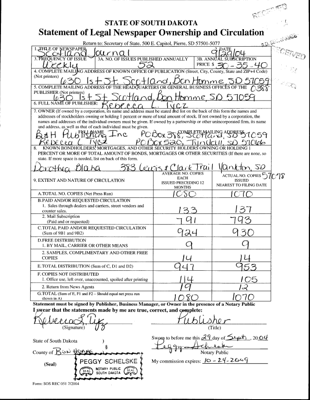 STATE OF SOUTH DAKOTA
Statement of Legal Newspaper Ownership and Circulation
Return to: Secretary of State, 500 E. Capitol, Pierre, SD 57501-5077
1. TITLE OF NEWSPAPER
Scotland Journal
2. DATE
3. FREQUENCY OF ISSUE
Weekly
3A. NO. OF ISSUES PUBLISHED ANNUALLY
52
3B. ANNUAL SUBSCRIPTION
PRICE $ 30-35-40
4. COMPLETE MAILING ADDRESS OF KNOWN OFFICE OF PUBLICATION (Street, City, County, State and ZIP+4 Code)
(Not printers)
630 1st St. Scotland, Bon Homme, SD 57059
5. COMPLETE MAILING ADDRESS OF THE HEADQUARTERS OR GENERAL BUSINESS OFFICES OF THE
PUBLISHER (Not printer)
630 1st St Scotland, Bon Homme, SD 57059
6. FULL NAME OF PUBLISHER:
Rebecca L Tycz
7. OWNER (If owned by a corporation, its name and address must be stated and
addresses of stockholders owning or holding 1 percent or more of total amount of stock. If not owned by a corporation, the
names and addresses of the individual owners must be given. If owned by a partnership or other unincorporated firm, its name
and address, as well as that of each individual must be given.
FULL NAME
COMPLETE MAILING ADDRESS
B&H Publishing Inc PO Box 318, Scotland, SD 57059
Rebecca L Tycz PO Box 540, Tyndall, SD 57066
8. KNOWN BONDHOLDERS, MORTGAGEES, AND OTHER SECURITY HOLDERS OWNING OR HOLDING 1
PERCENT OR MORE OF TOTAL AMOUNT OF BONDS, MORTGAGES OR OTHER SECURITIES (If there are none, so
state. If more space is needed, list on back of this form.
Dorothea Blaha 383 Learn r Clark Trail Yankton SD
57078
9. EXTENT AND NATURE OF CIRCULATION
AVERAGE NO. COPIES
EACH
ISSUED PRECEDING 12
MONTHS
ACTUAL NO. COPIES
ISSUED
NEAREST TO FILING DATE
A. TOTAL NO. COPIES (Net Press Run)
1080 1070
B. PAID AND/OR REQUESTED CIRCULATION
1. Sales through dealers and carriers, street vendors and
counter sales.
133 137
2. Mail Subscription
(Paid and/or requested)
791 793
C. TOTAL PAID AND/OR REQUESTED CIRCULATION
(Sum of 9B1 and 9B2)
924 930
D. FREE DISTRIBUTION
1. BY MAIL, CARRIER OR OTHER MEANS
9 9
2. SAMPLES, COMPLIMENTARY AND OTHER FREE
COPIES
14 14
E. TOTAL DISTRIBUTION (Sum of C, D1 and D2)
947 953
F. COPIES NOT DISTRIBUTED
1. Office use, left over, unaccounted, spoiled after printing
114 105
2. Return from News Agents
19 12
G. TOTAL (Sum of E, F1 and F2 - Should equal net press run
shown in A)
1080 1070
Statement must be signed by Publisher, Business Manager, or Owner in the presence of a Notary Public
I swear that the statements made by me are true, correct, and complete:
Rebecca L Tycz
(Signature)
Publisher
(Title)
State of South Dakota )
County of Bon Homme
Sworn to before me this 29 day of Sept. 2004
Peggy Schelske
Notary Public
(Seal)
PEGGY SCHELSKE
NOTARY PUBLIC
SOUTH DAKOTA
SEAL
My commission expires: 10-24-2009
Form: SOS REC 051 7/2004